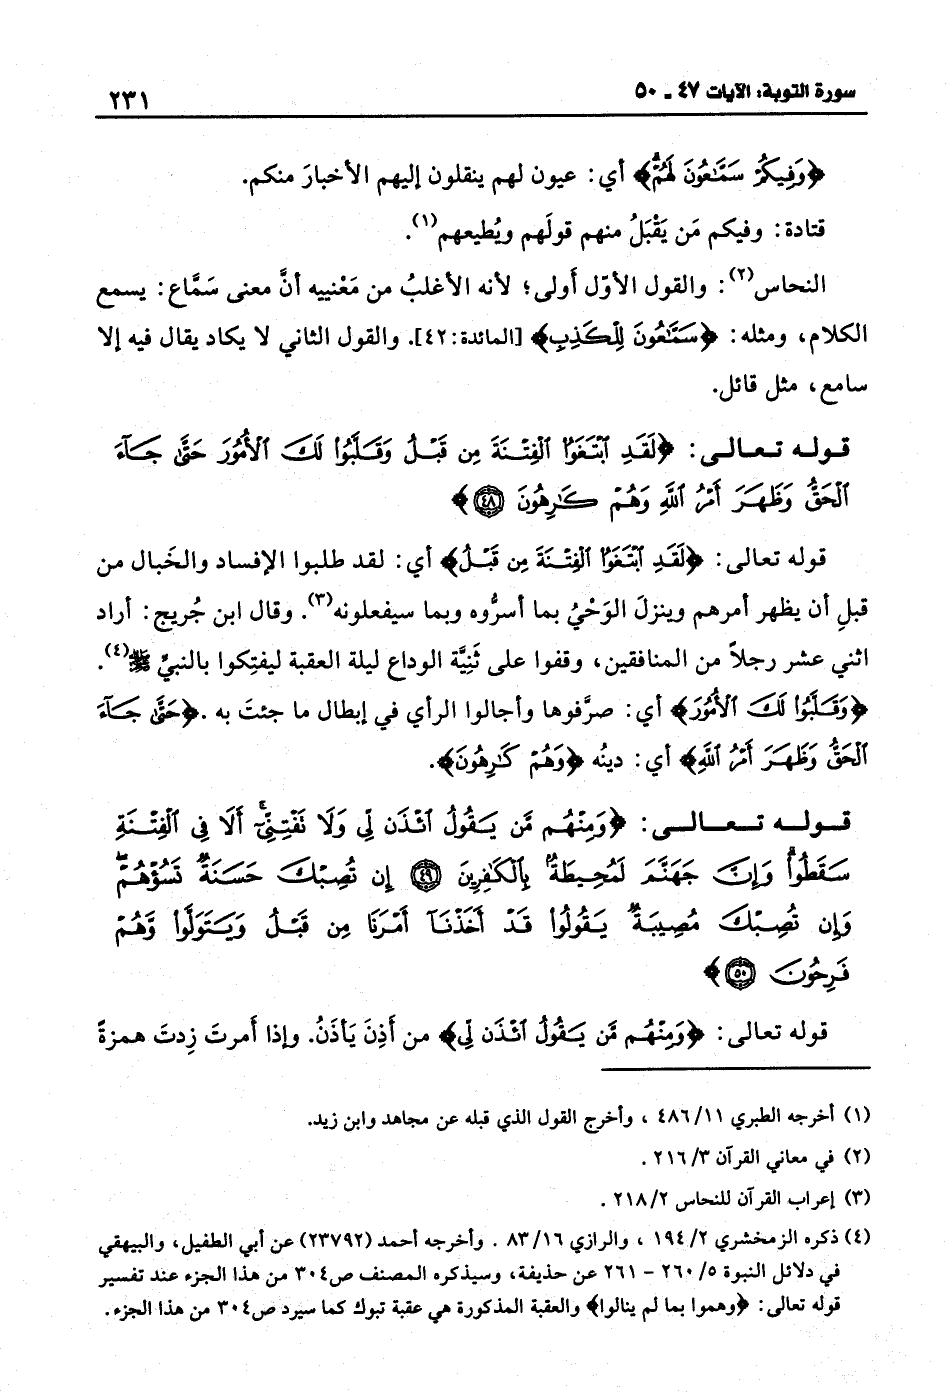 سورة التوبة: الآيات ٤٧ ـ ٥٠
٢٣١
﴿وَفِيكُمْ سَمَّاعُونَ لَهُمْ﴾ أي: عيون لهم ينقلون إليهم الأخبارَ منكم.
قتادة: وفيكم مَن يَقْبَلُ منهم قولَهم ويُطيعهم(١).
النحاس(٢): والقول الأوّل أَولى؛ لأنه الأغلبُ من مَعْنييه أنَّ معنى سَمَّاع: يسمع
الكلام، ومثله: ﴿سَمَّاعُونَ لِلْكَذِبِ﴾ [المائدة:٤٢]. والقول الثاني لا يكاد يقال فيه إلا
سامع، مثل قائل.
قوله تعالى: ﴿لَقَدِ ابْتَغَوُا الْفِتْنَةَ مِن قَبْلُ وَقَلَّبُوا لَكَ الْأُمُورَ حَتَّىٰ جَاءَ
الْحَقُّ وَظَهَرَ أَمْرُ اللَّهِ وَهُمْ كَارِهُونَ ۝٤٨﴾
قوله تعالى: ﴿لَقَدِ ابْتَغَوُا الْفِتْنَةَ مِن قَبْلُ﴾ أي: لقد طلبوا الإفساد والخَبال من
قبلِ أن يظهر أمرهم وينزلَ الوَحْيُ بما أسرُّوه وبما سيفعلونه(٣). وقال ابن جُريج: أراد
اثني عشر رجلاً من المنافقين، وقفوا على ثَنِيَّة الوداع ليلة العقبة ليفتِكوا بالنبيِّ ﷺ(٤).
﴿وَقَلَّبُوا لَكَ الْأُمُورَ﴾ أي: صرَّفوها وأجالوا الرأي في إبطال ما جئتَ به .﴿حَتَّىٰ جَاءَ
الْحَقُّ وَظَهَرَ أَمْرُ اللَّهِ﴾ أي: دينُه ﴿وَهُمْ كَارِهُونَ﴾.
قوله تعالى: ﴿وَمِنْهُم مَّن يَقُولُ ائْذَن لِّي وَلَا تَفْتِنِّي ۚ أَلَا فِي الْفِتْنَةِ
سَقَطُوا ۗ وَإِنَّ جَهَنَّمَ لَمُحِيطَةٌ بِالْكَافِرِينَ ۝٤٩ إِن تُصِبْكَ حَسَنَةٌ تَسُؤْهُمْ ۖ
وَإِن تُصِبْكَ مُصِيبَةٌ يَقُولُوا قَدْ أَخَذْنَا أَمْرَنَا مِن قَبْلُ وَيَتَوَلَّوا وَّهُمْ
فَرِحُونَ ۝٥٠﴾
قوله تعالى: ﴿وَمِنْهُم مَّن يَقُولُ ائْذَن لِّي﴾ من أَذِنَ يَأذَنُ. وإذا أَمرتَ زِدتَ همزةً
(١) أخرجه الطبري ١١/ ٤٨٦ ، وأخرج القول الذي قبله عن مجاهد وابن زيد.
(٢) في معاني القرآن ٣/ ٢١٦ .
(٣) إعراب القرآن للنحاس ٢/ ٢١٨ .
(٤) ذكره الزمخشري ٢/ ١٩٤ ، والرازي ١٦/ ٨٣ . وأخرجه أحمد (٢٣٧٩٢) عن أبي الطفيل، والبيهقي
في دلائل النبوة ٥/ ٢٦٠ - ٢٦١ عن حذيفة، وسيذكره المصنف ص٣٠٤ من هذا الجزء عند تفسير
قوله تعالى: ﴿وهموا بما لم ينالوا﴾ والعقبة المذكورة هي عقبة تبوك كما سيرد ص٣٠٤ من هذا الجزء.